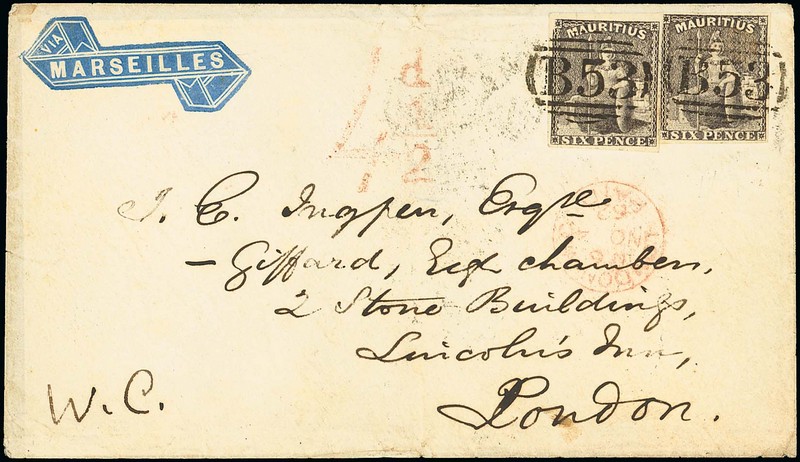 VIA
MARSEILLES
4d
1/2
MAURITIUS
B53
SIX PENCE
MAURITIUS
B53
SIX PENCE
J. C. Ingpen, Esqre
- Giffard, Esq chambers,
2 Stone Buildings,
Lincoln's Inn,
London.
W.C.